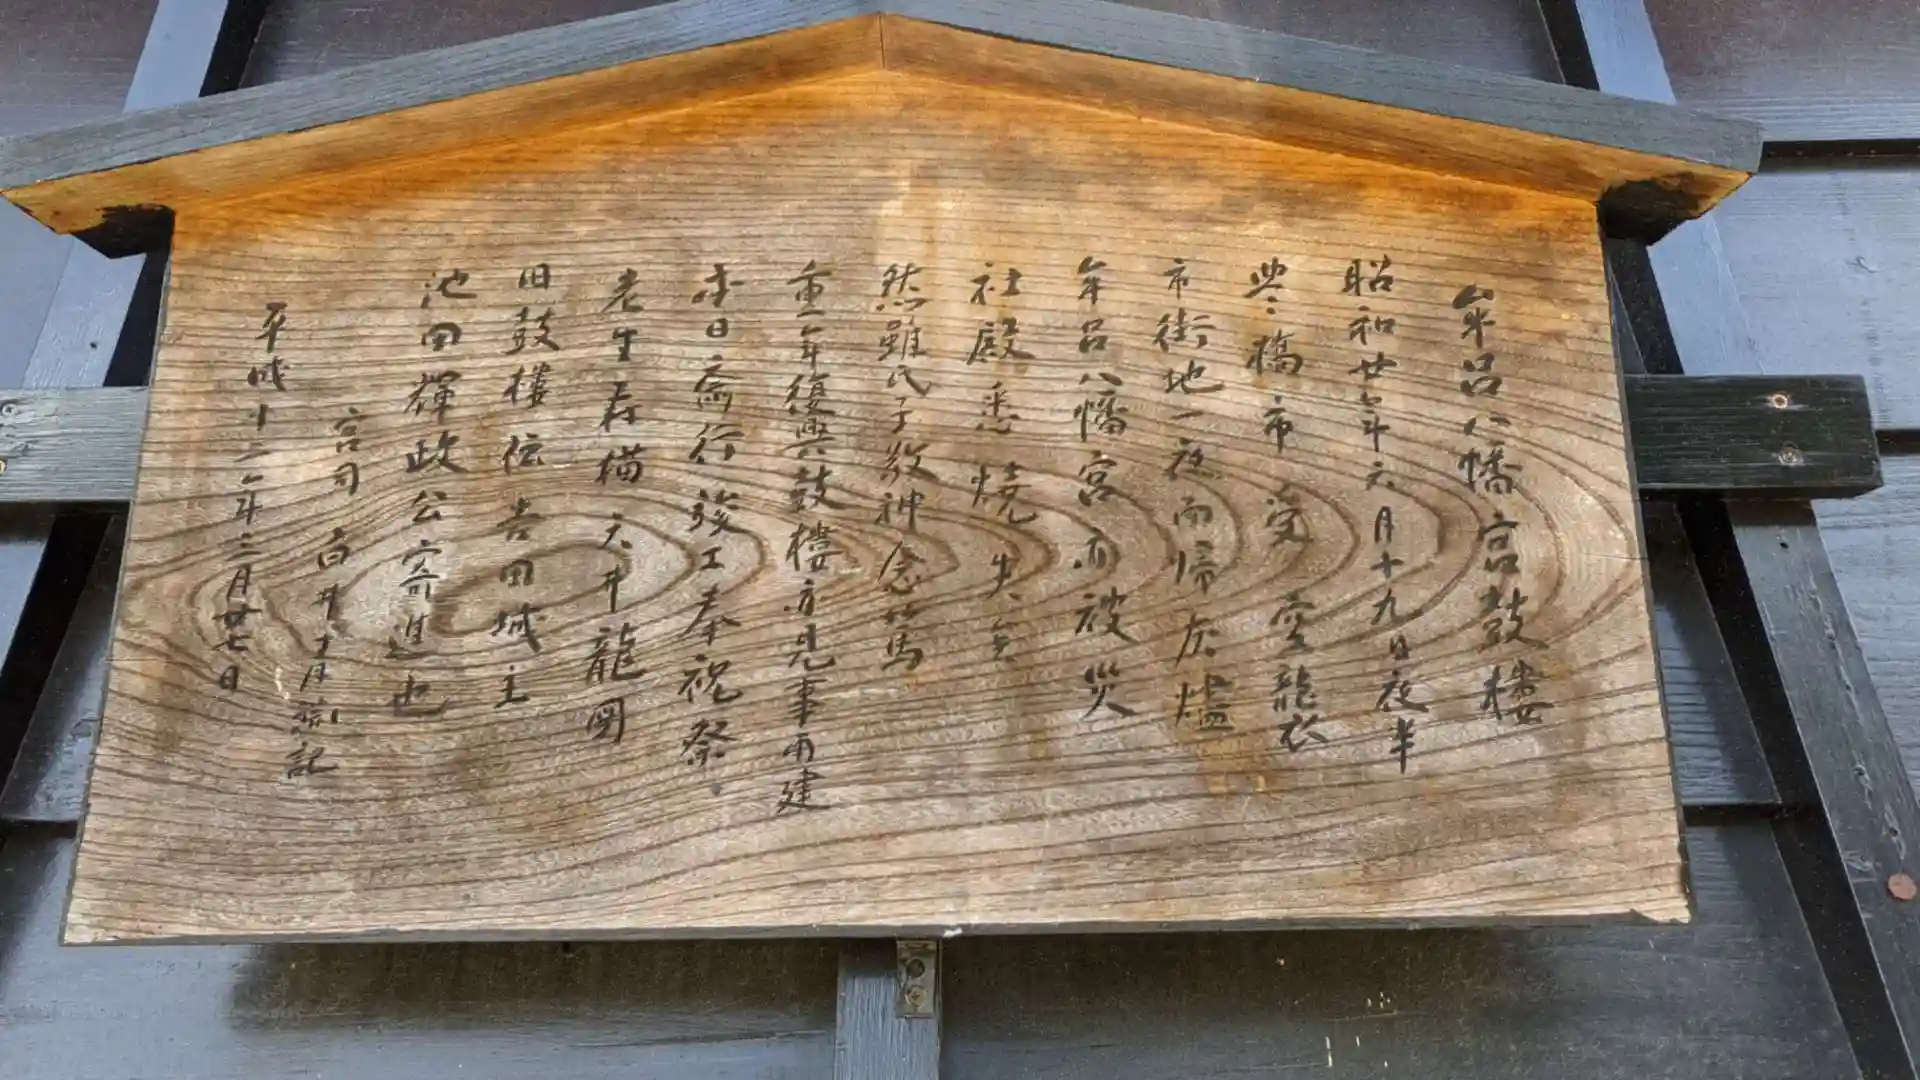 牟呂八幡宮鼓樓
昭和廿年六月十九日夜半
豊橋市 受 空襲衣
市街地一夜而帰灰燼
牟呂八幡宮亦被災
社殿悉焼失矣
然雖氏子敬神念篤
重年復興鼓樓亦見事再建
本日斎行竣工奉祝祭
老生春描天井龍圖
旧鼓樓伝吉田城主
池田輝政公寄進也
宮司 白井 記
平成十二年三月廿七日